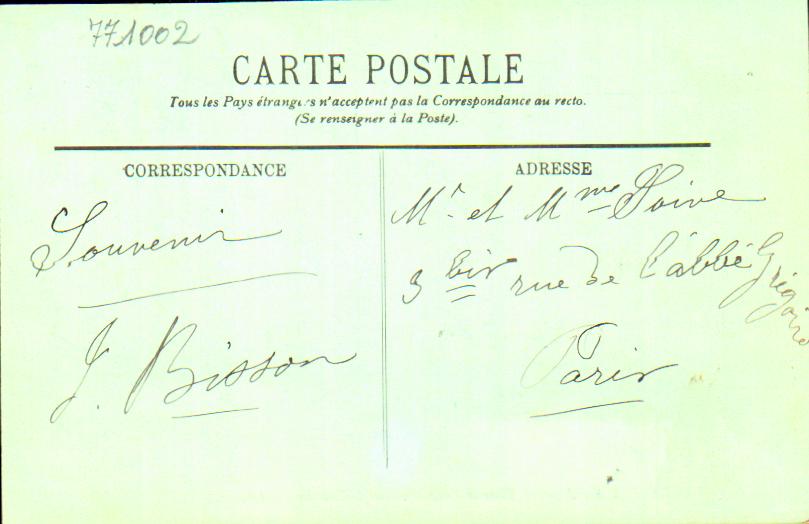 771002
CARTE POSTALE
Tous les Pays étrangers n'acceptent pas la Correspondance au recto.
(Se renseigner à la Poste).
CORRESPONDANCE
Souvenir
J. Bisson
ADRESSE
Mr. et Mme Soive
3 bis rue de l'abbé Grégoire
Paris